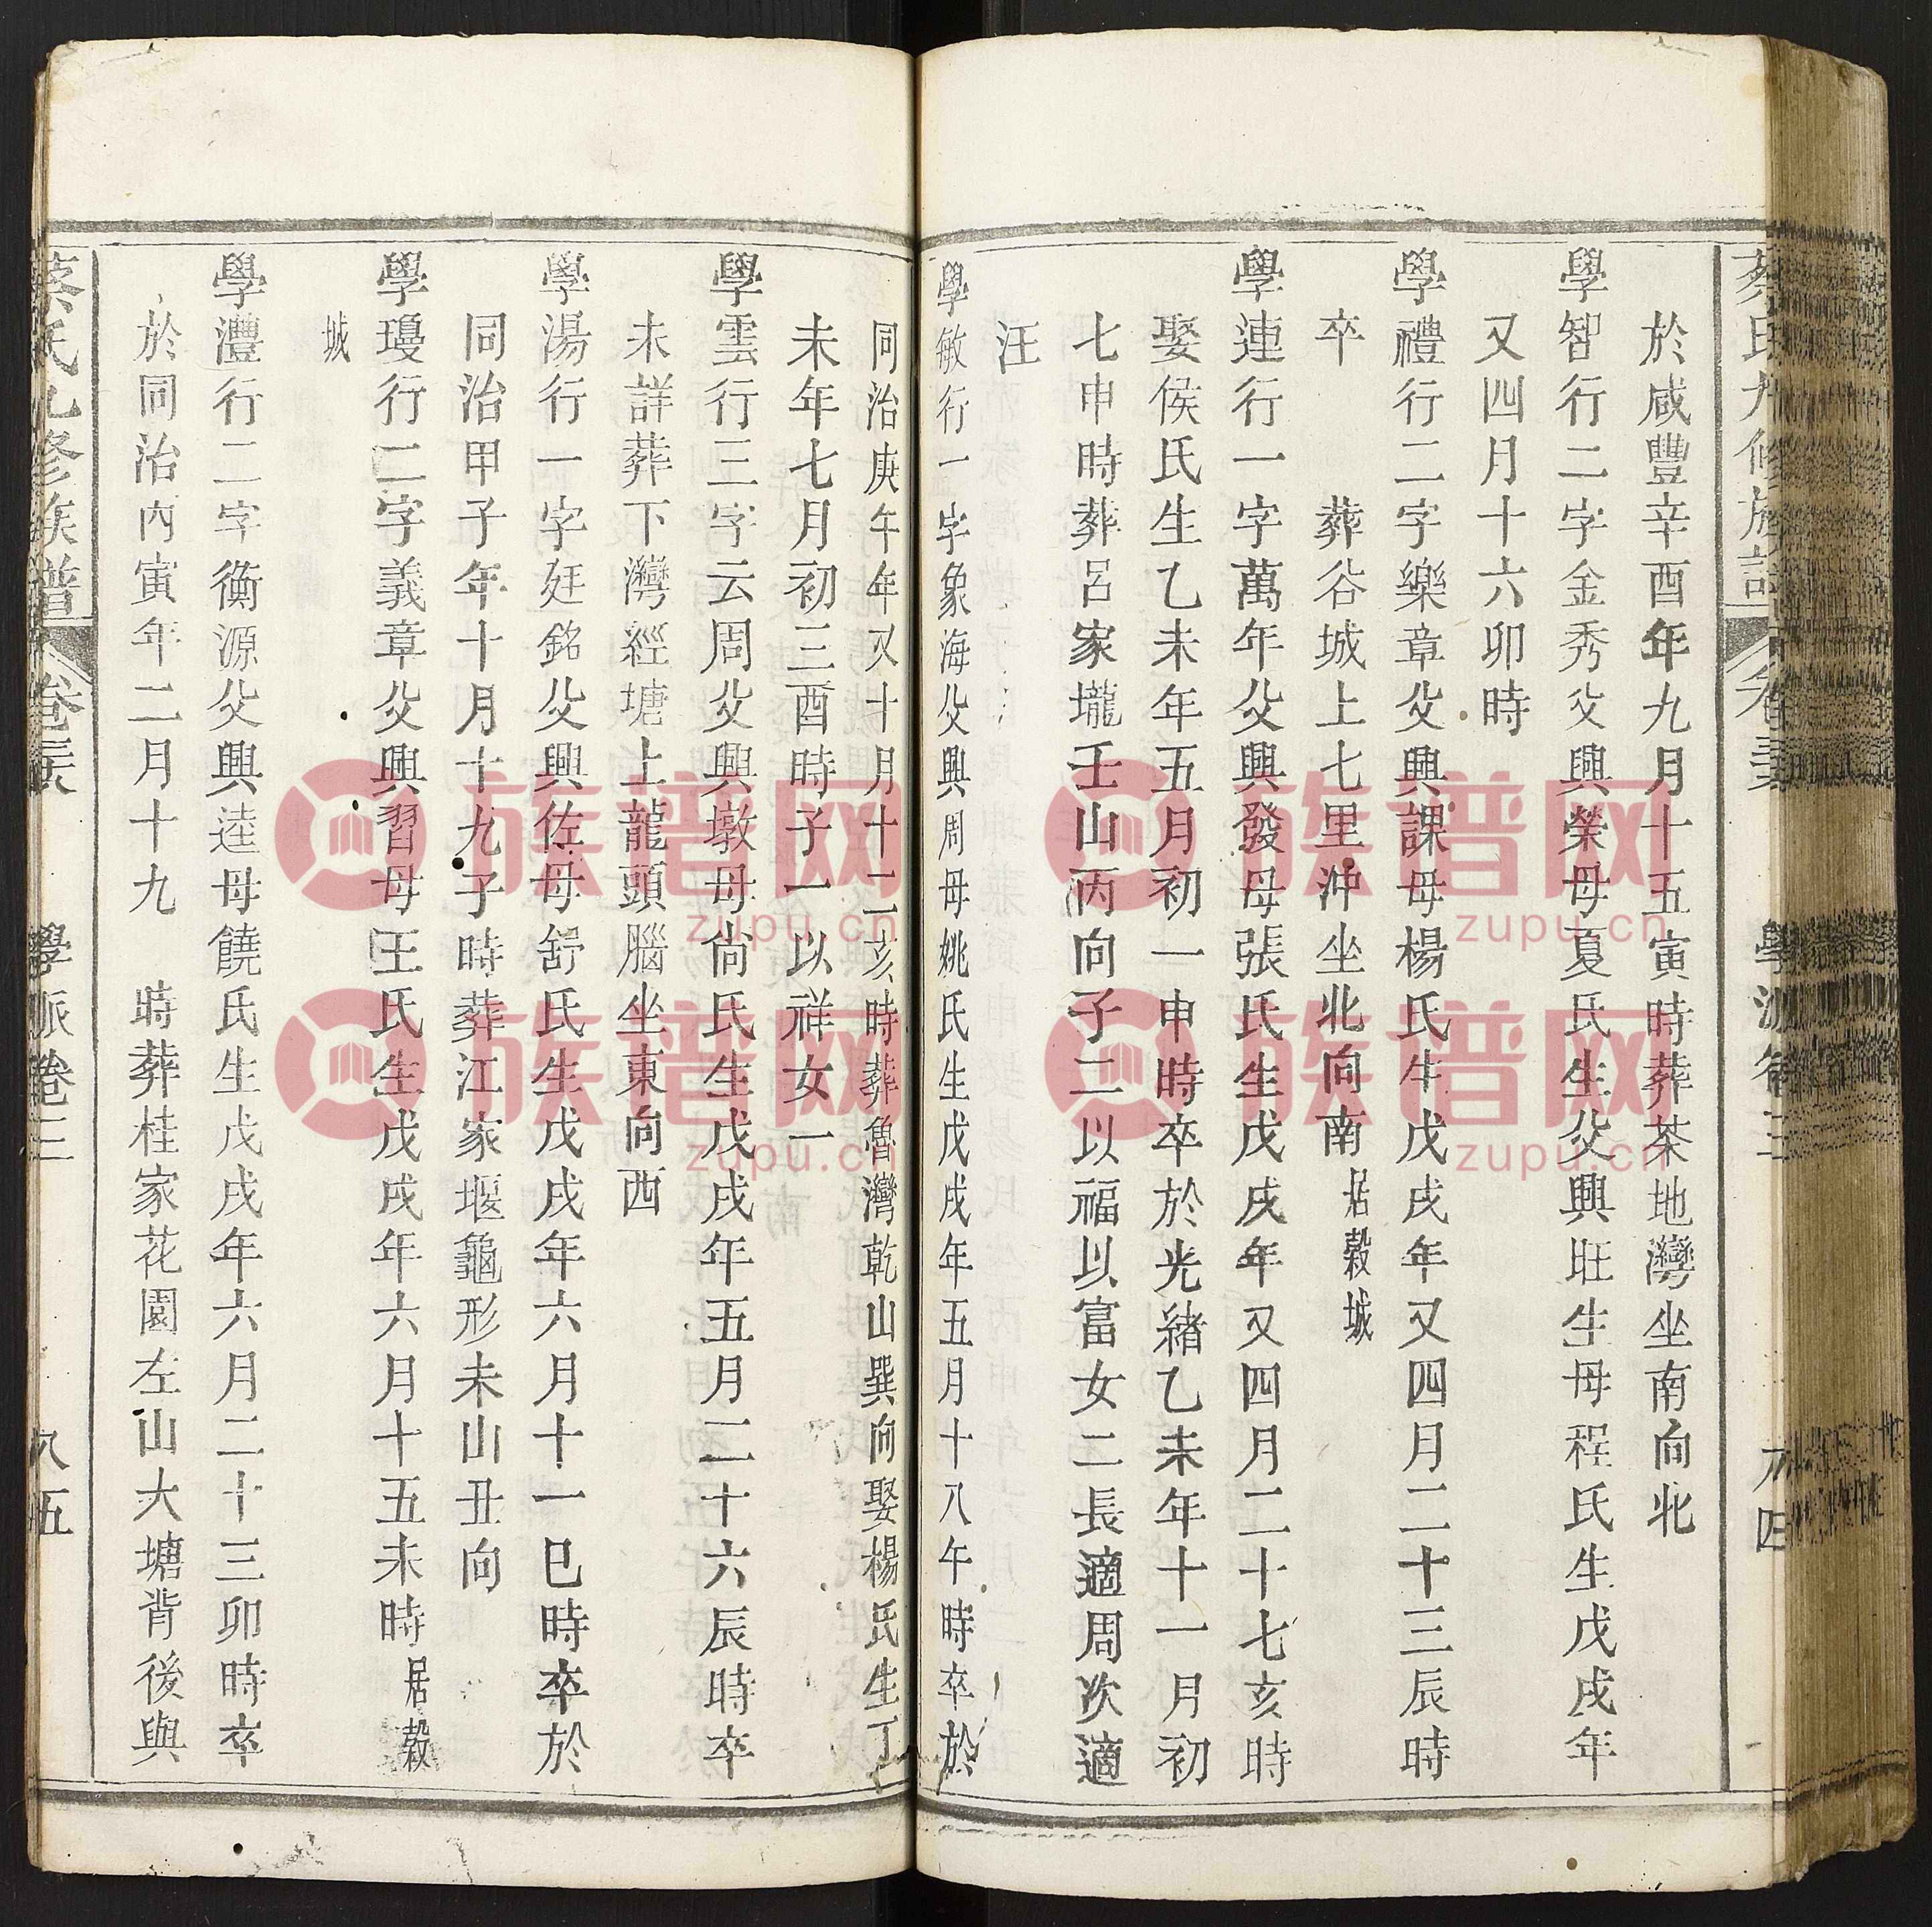 蔡氏九修族譜 卷叁 學派卷三 八四
於咸豐辛酉年九月十五寅時葬茶地灣坐南向北
學智行二字金秀父興榮母夏氏生父興旺生母程氏生戊戌年
又四月十六卯時
學禮行二字樂章父興課母楊氏生戊戌年又四月二十三辰時
卒　　葬谷城上七里沖坐北向南居穀城
學連行一字萬年父興發母張氏生戊戌年又四月二十七亥時
娶侯氏生乙未年五月初一申時卒於光緒乙未年十一月初
七申時葬呂家壠壬山丙向子二以福以富女二長適周次適
汪
學敏行一字象海父興周母姚氏生戊戌年五月十八午時卒於
同治庚午年又十月十二亥時葬魯灣乾山巽向娶楊氏生丁
未年七月初三酉時子一以祥女一
學雲行三字云周父興墩母尙氏生戊戌年五月二十六辰時卒
未詳葬下灣經塘上龍頭腦坐東向西
學湯行一字廷銘父興佐母舒氏生戊戌年六月十一巳時卒於
同治甲子年十月十九子時葬江家堰龜形未山丑向
學瓊行二字義章父興習母王氏生戊戌年六月十五未時居穀
城
學灃行二字衡源父興逵母饒氏生戊戌年六月二十三卯時卒
於同治丙寅年二月十九　時葬桂家花園左山大塘背後與
蔡氏九修族譜 卷叁 學派卷三 八五
族谱网
zupu.cn
族谱网
zupu.cn
族谱网
zupu.cn
族谱网
zupu.cn